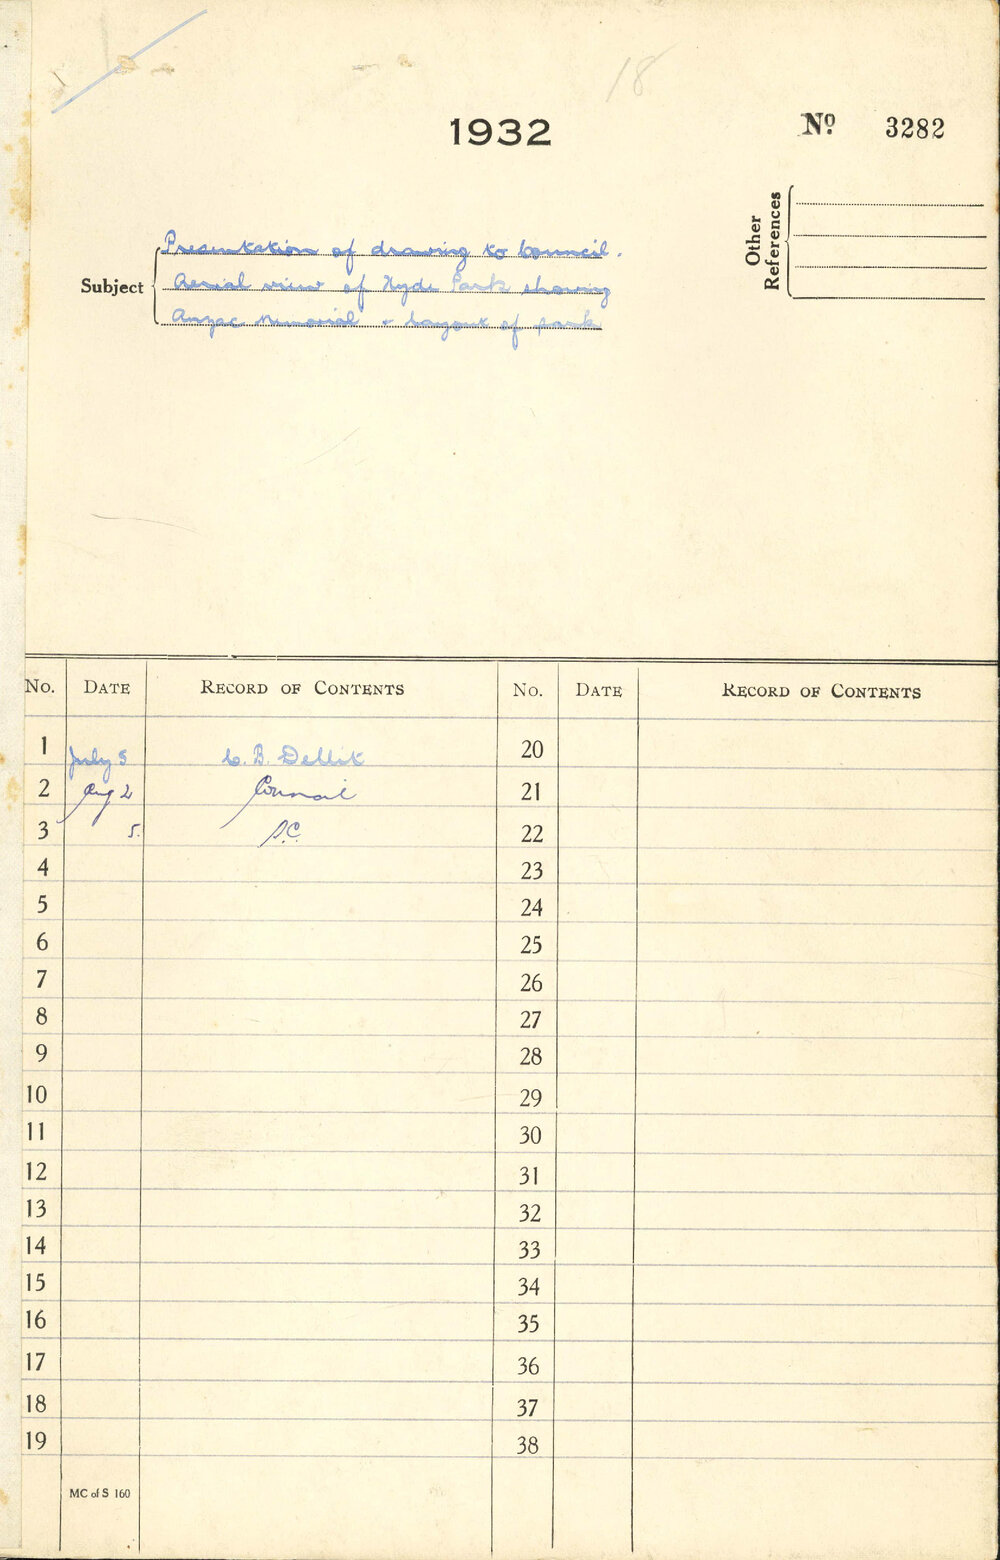 18
1932
No 3282
Other References
Subject
Presentation of drawing to Council.
Aerial view of Hyde Park showing
Anzac Memorial & layout of park
No. DATE RECORD OF CONTENTS No. DATE RECORD OF CONTENTS
1 July 5 C. B. Dellit 20
2 Aug 2 Council 21
3 5. 22
4 23
5 24
6 25
7 26
8 27
9 28
10 29
11 30
12 31
13 32
14 33
15 34
16 35
17 36
18 37
19 38
MC of S 160